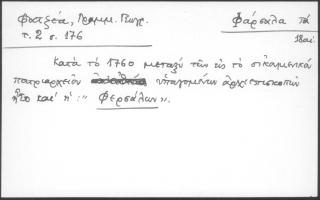 Φωτζέα, Γραμμ. Γεωγρ.
τ. 2 σ. 176
Φάρσαλα τά
18 αἰ.
Κατά τό 1760 μεταξύ τῶν εἰς τό οἰκουμενικό
πατριαρχεῖον ὑπαγομένων ἀρχιεπισκοπῶν
ἦτο καί ἡ: "Φερσάλων".